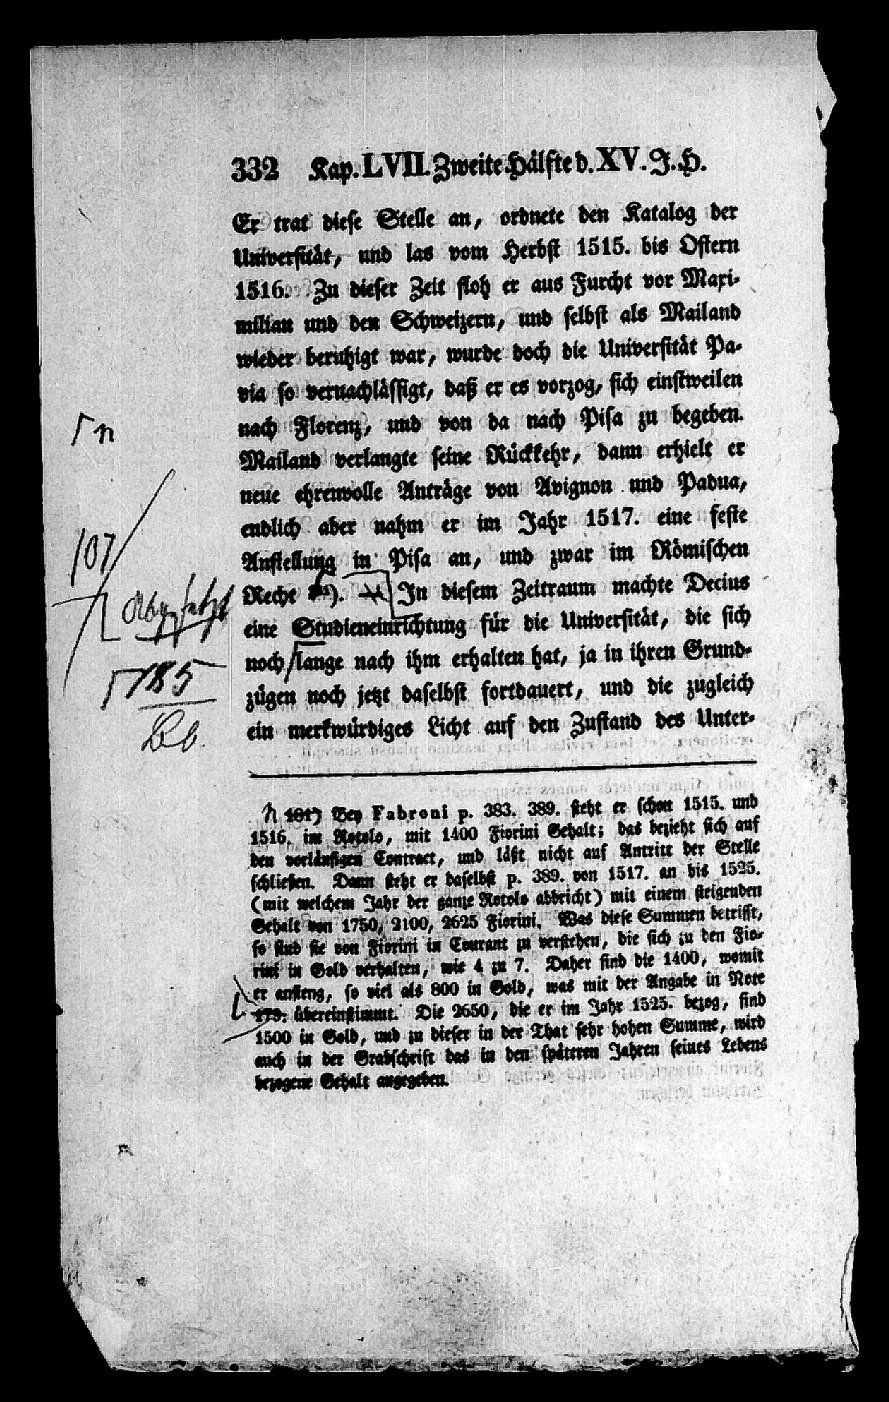 332 Kap. LVII. Zweite Hälfte d. XV. J. H.
Er trat diese Stelle an, ordnete den Katalog der
Universität, und las vom Herbst 1515. bis Ostern
1516. Zu dieser Zeit floh er aus Furcht vor Maxi-
milian und den Schweizern, und selbst als Mailand
wieder beruhigt war, wurde doch die Universität Pa-
via so vernachlässigt, daß er es vorzog, sich einstweilen
nach Florenz, und von da nach Pisa zu begeben.
Mailand verlangte seine Rückkehr, dann erhielt er
neue ehrenvolle Anträge von Avignon und Padua,
endlich aber nahm er im Jahr 1517. eine feste
Anstellung in Pisa an, und zwar im Römischen
Reche ). In diesem Zeitraum machte Decius
eine Studieneinrichtung für die Universität, die sich
noch lange nach ihm erhalten hat, ja in ihren Grund-
zügen noch jetzt daselbst fortdauert, und die zugleich
ein merkwürdiges Licht auf den Zustand des Unter-
n
107
Absatz
185
n 181) Bey Fabroni p. 383. 389. steht er schon 1515. und
1516. im Rotolo, mit 1400 Fiorini Gehalt; das bezieht sich auf
den vorläufigen Contract, und läßt nicht auf Antritt der Stelle
schließen. Dann steht er daselbst p. 389. von 1517. an bis 1525.
(mit welchem Jahr der ganze Rotolo abbricht) mit einem steigenden
Gehalt von 1750, 2100, 2625 Fiorini. Was diese Summen betrifft,
so sind sie von Fiorini in Courant zu verstehen, die sich zu den Fio-
rini in Gold verhalten, wie 4 zu 7. Daher sind die 1400, womit
er anfieng, so viel als 800 in Gold, was mit der Angabe in Note
i 179. übereinstimmt. Die 2650, die er im Jahr 1525. bezog, sind
1500 in Gold, und zu dieser in der That sehr hohen Summe, wird
auch in der Grabschrift das in den späteren Jahren seines Lebens
bezogene Gehalt angegeben.